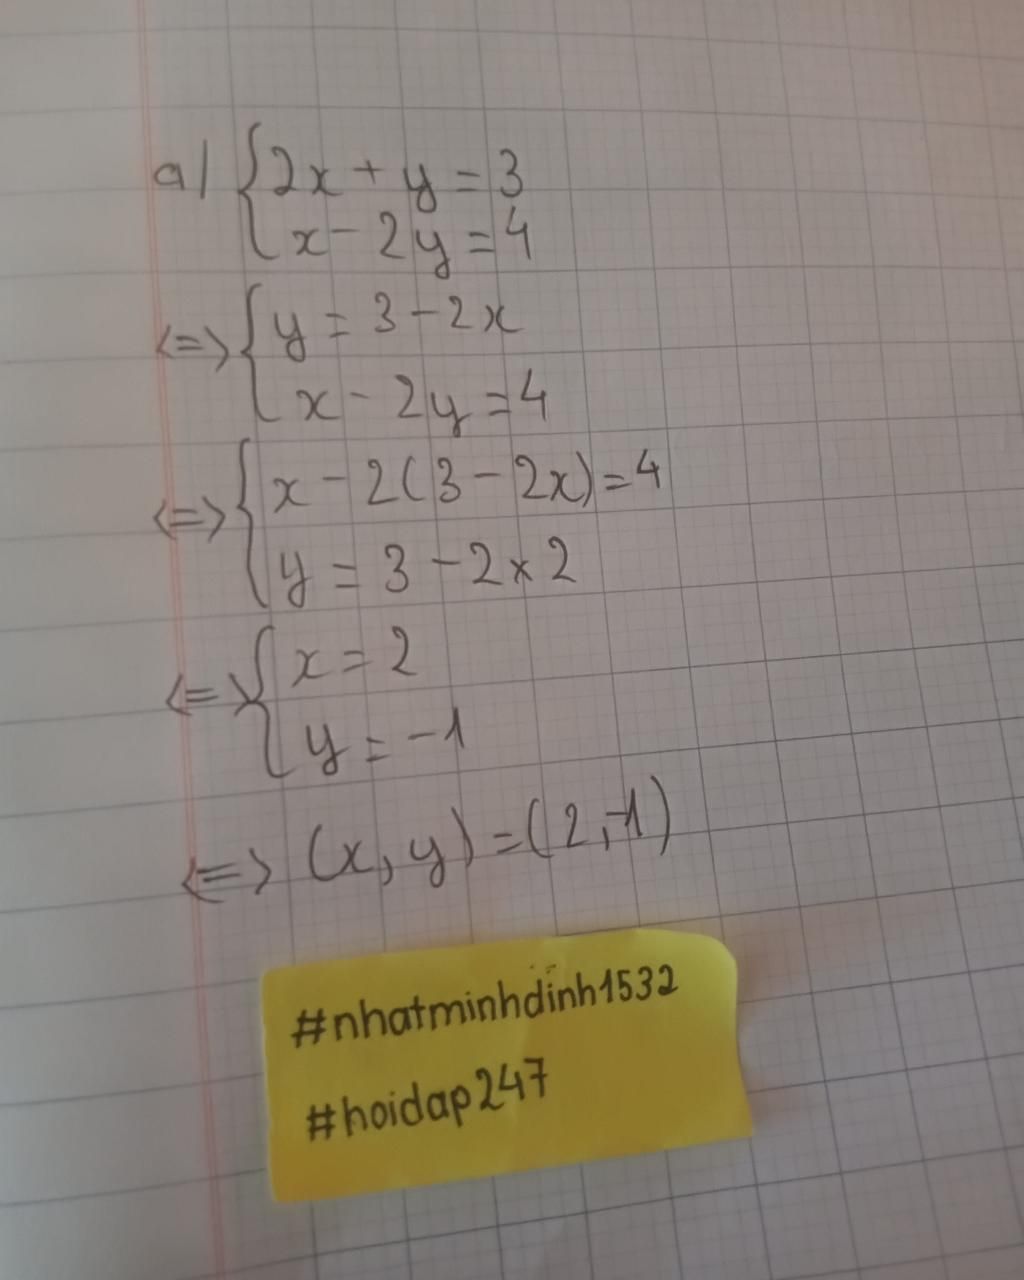 a/ { 2x + y = 3
x - 2y = 4
<=> { y = 3 - 2x
x - 2y = 4
<=> { x - 2(3 - 2x) = 4
y = 3 - 2 x 2
<=> { x = 2
y = -1
<=> (x, y) = (2, -1)
#nhatminhdinh1532
#hoidap247